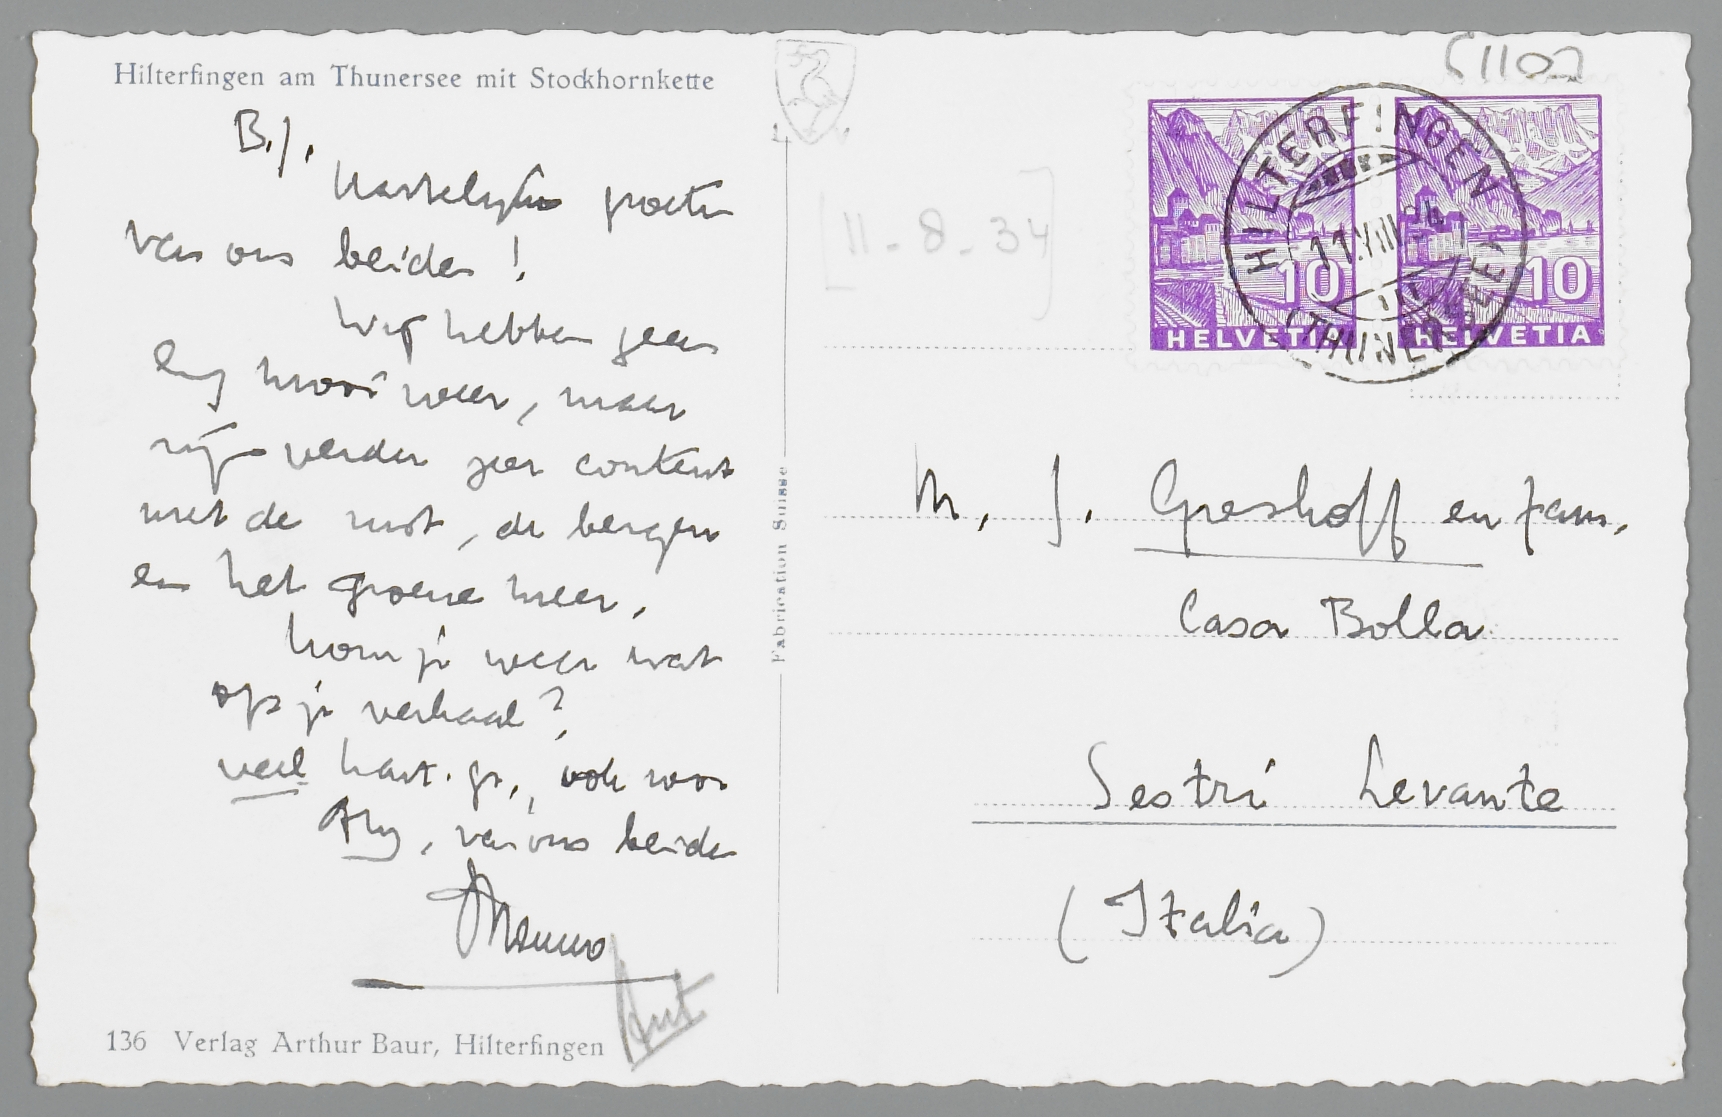 Hilterfingen am Thunersee mit Stockhornkette
B.J.
Hartelijke groeten
van ons beiden!
Wij hebben geen
erg mooi weer, maar
zijn verder zeer content
met de rust, de bergen
en het groene meer.
Kom je weer wat
op je verhaal?
veel hart. gr., ook voor
Aty, van ons beiden
Menno
Ant
136 Verlag Arthur Baur, Hilterfingen
Fabrication Suisse
[11-8-34]
51102
HILTERFINGEN
11.VIII.34
(THUNERSEE)
10 10
HELVETIA HELVETIA
M. J. Greshoff en fam.
Casa Bolla
Sestri Levante
(Italia)